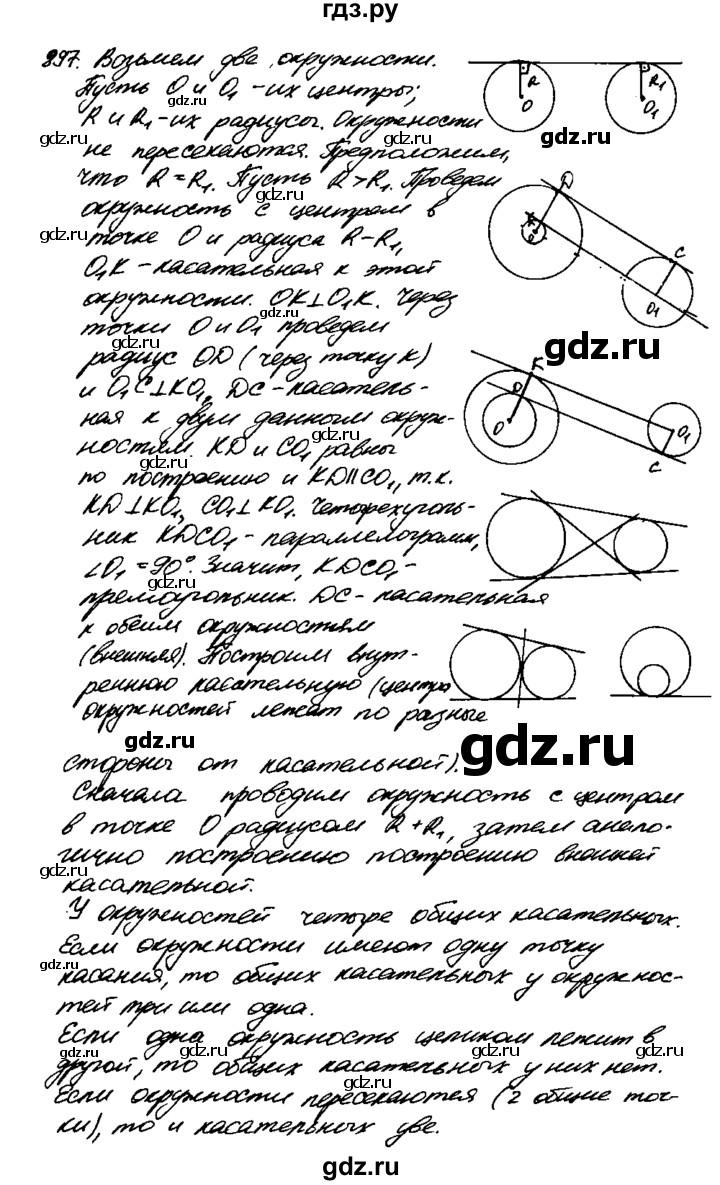 гдз.ру
897. Возьмем две окружности.
Пусть O и O₁ - их центры;
R и R₁ - их радиусы. Окружности
не пересекаются. Предположим,
что R = R₁. Пусть R > R₁. Проведем
окружность с центром в
точке O и радиуса R-R₁,
O₁K - касательная к этой
окружности. OK⊥O₁K. Через
точки O и O₁ проведем
радиус OD (через точку K)
и O₁C⊥KO₁, DC - касатель-
ная к двум данным окруж-
ностям. KD и CO₁ равны
по построению и KD∥CO₁, т.к.
KD⊥KO₁, CO₁⊥KO₁. Четырехуголь-
ник KDCO₁ - параллелограмм,
∠O₁ = 90°. Значит, KDCO₁ -
прямоугольник. DC - касательная
к обеим окружностям
(внешняя). Построим внут-
реннюю касательную (центры
окружностей лежат по разные
стороны от касательной).
Сначала проводим окружность с центром
в точке O радиусом R+R₁, затем анало-
гично построению построению внешней
касательной.
У окружностей четыре общих касательных.
Если окружности имеют одну точку
касания, то общих касательных у окружнос-
тей три или одна.
Если одна окружность целиком лежит в
другой, то общих касательных у них нет.
Если окружности пересекаются (2 общие точ-
ки), то и касательных две.
R
O
R₁
O₁
D
K
O
C
O₁
K
D
O
O₁
C
gdz.ru
gdz.ru
gdz.ru
gdz.ru
gdz.ru
gdz.ru
gdz.ru
gdz.ru
gdz.ru
gdz.ru
gdz.ru
gdz.ru
gdz.ru
gdz.ru
gdz.ru
gdz.ru
gdz.ru
gdz.ru
gdz.ru
gdz.ru
gdz.ru
gdz.ru
gdz.ru